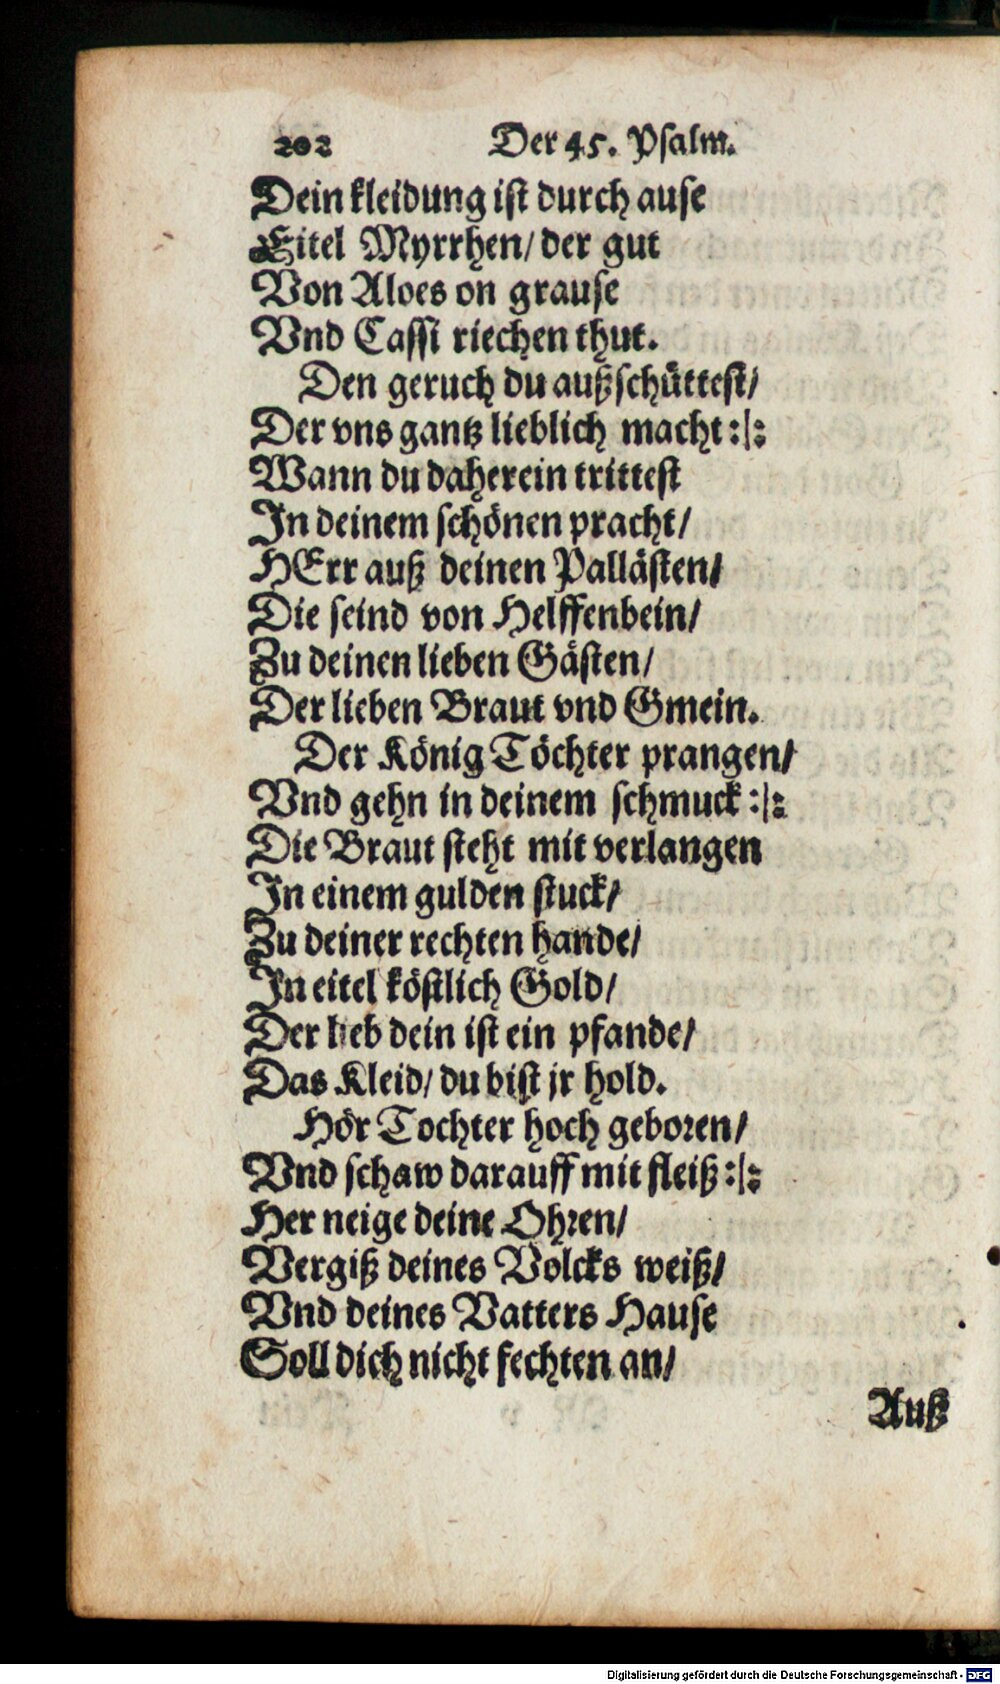 202 Der 45. Psalm.
Dein kleidung ist durch ause
Eitel Myrrhen/ der gut
Von Aloes on grause
Vnd Cassi riechen thut.
Den geruch du außschüttest/
Der vns gantz lieblich macht :|:
Wann du daherein trittest
In deinem schönen pracht/
HErr auß deinen Pallästen/
Die seind von Helffenbein/
Zu deinen lieben Gästen/
Der lieben Braut vnd Gmein.
Der König Töchter prangen/
Vnd gehn in deinem schmuck :|:
Die Braut steht mit verlangen
In einem gulden stuck/
Zu deiner rechten hande/
In eitel köstlich Gold/
Der lieb dein ist ein pfande/
Das Kleid/ du bist jr hold.
Hör Tochter hoch geboren/
Vnd schaw darauff mit fleiß :|:
Her neige deine Ohren/
Vergiß deines Volcks weiß/
Vnd deines Vatters Hause
Soll dich nicht fechten an/
Auß
Digitalisierung gefördert durch die Deutsche Forschungsgemeinschaft - DFG